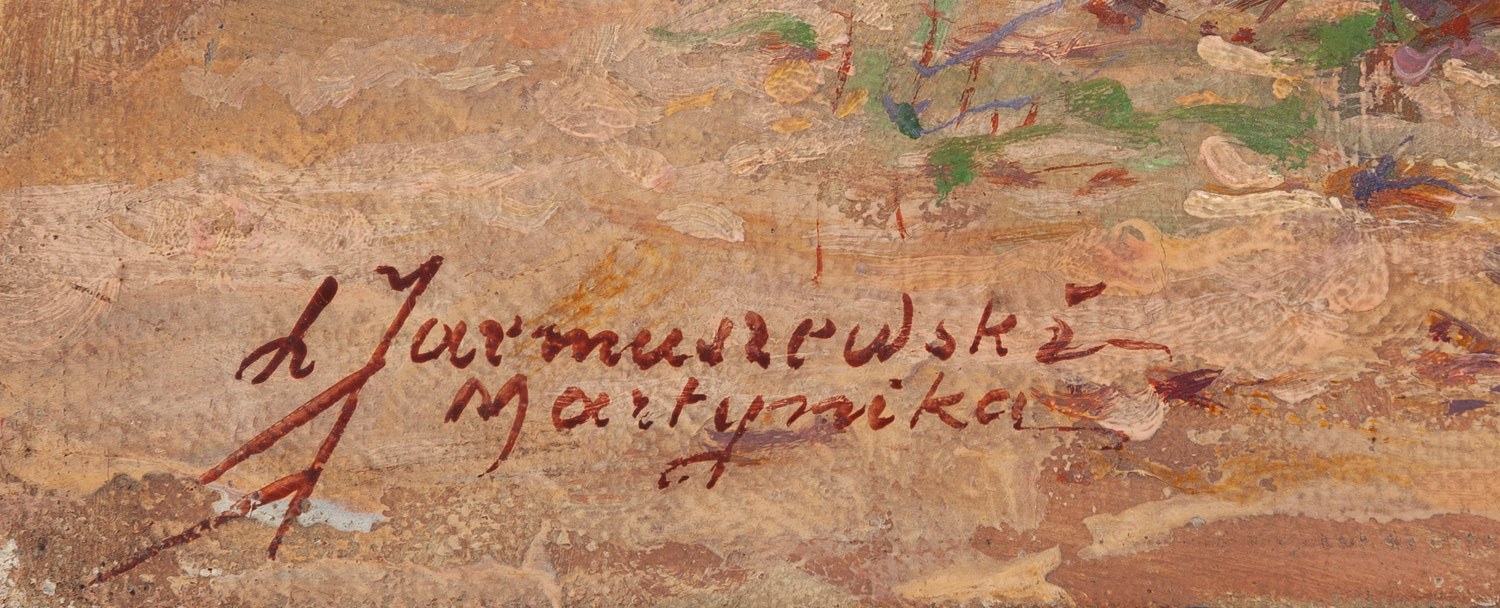 h Jarmuszewski
Martynika